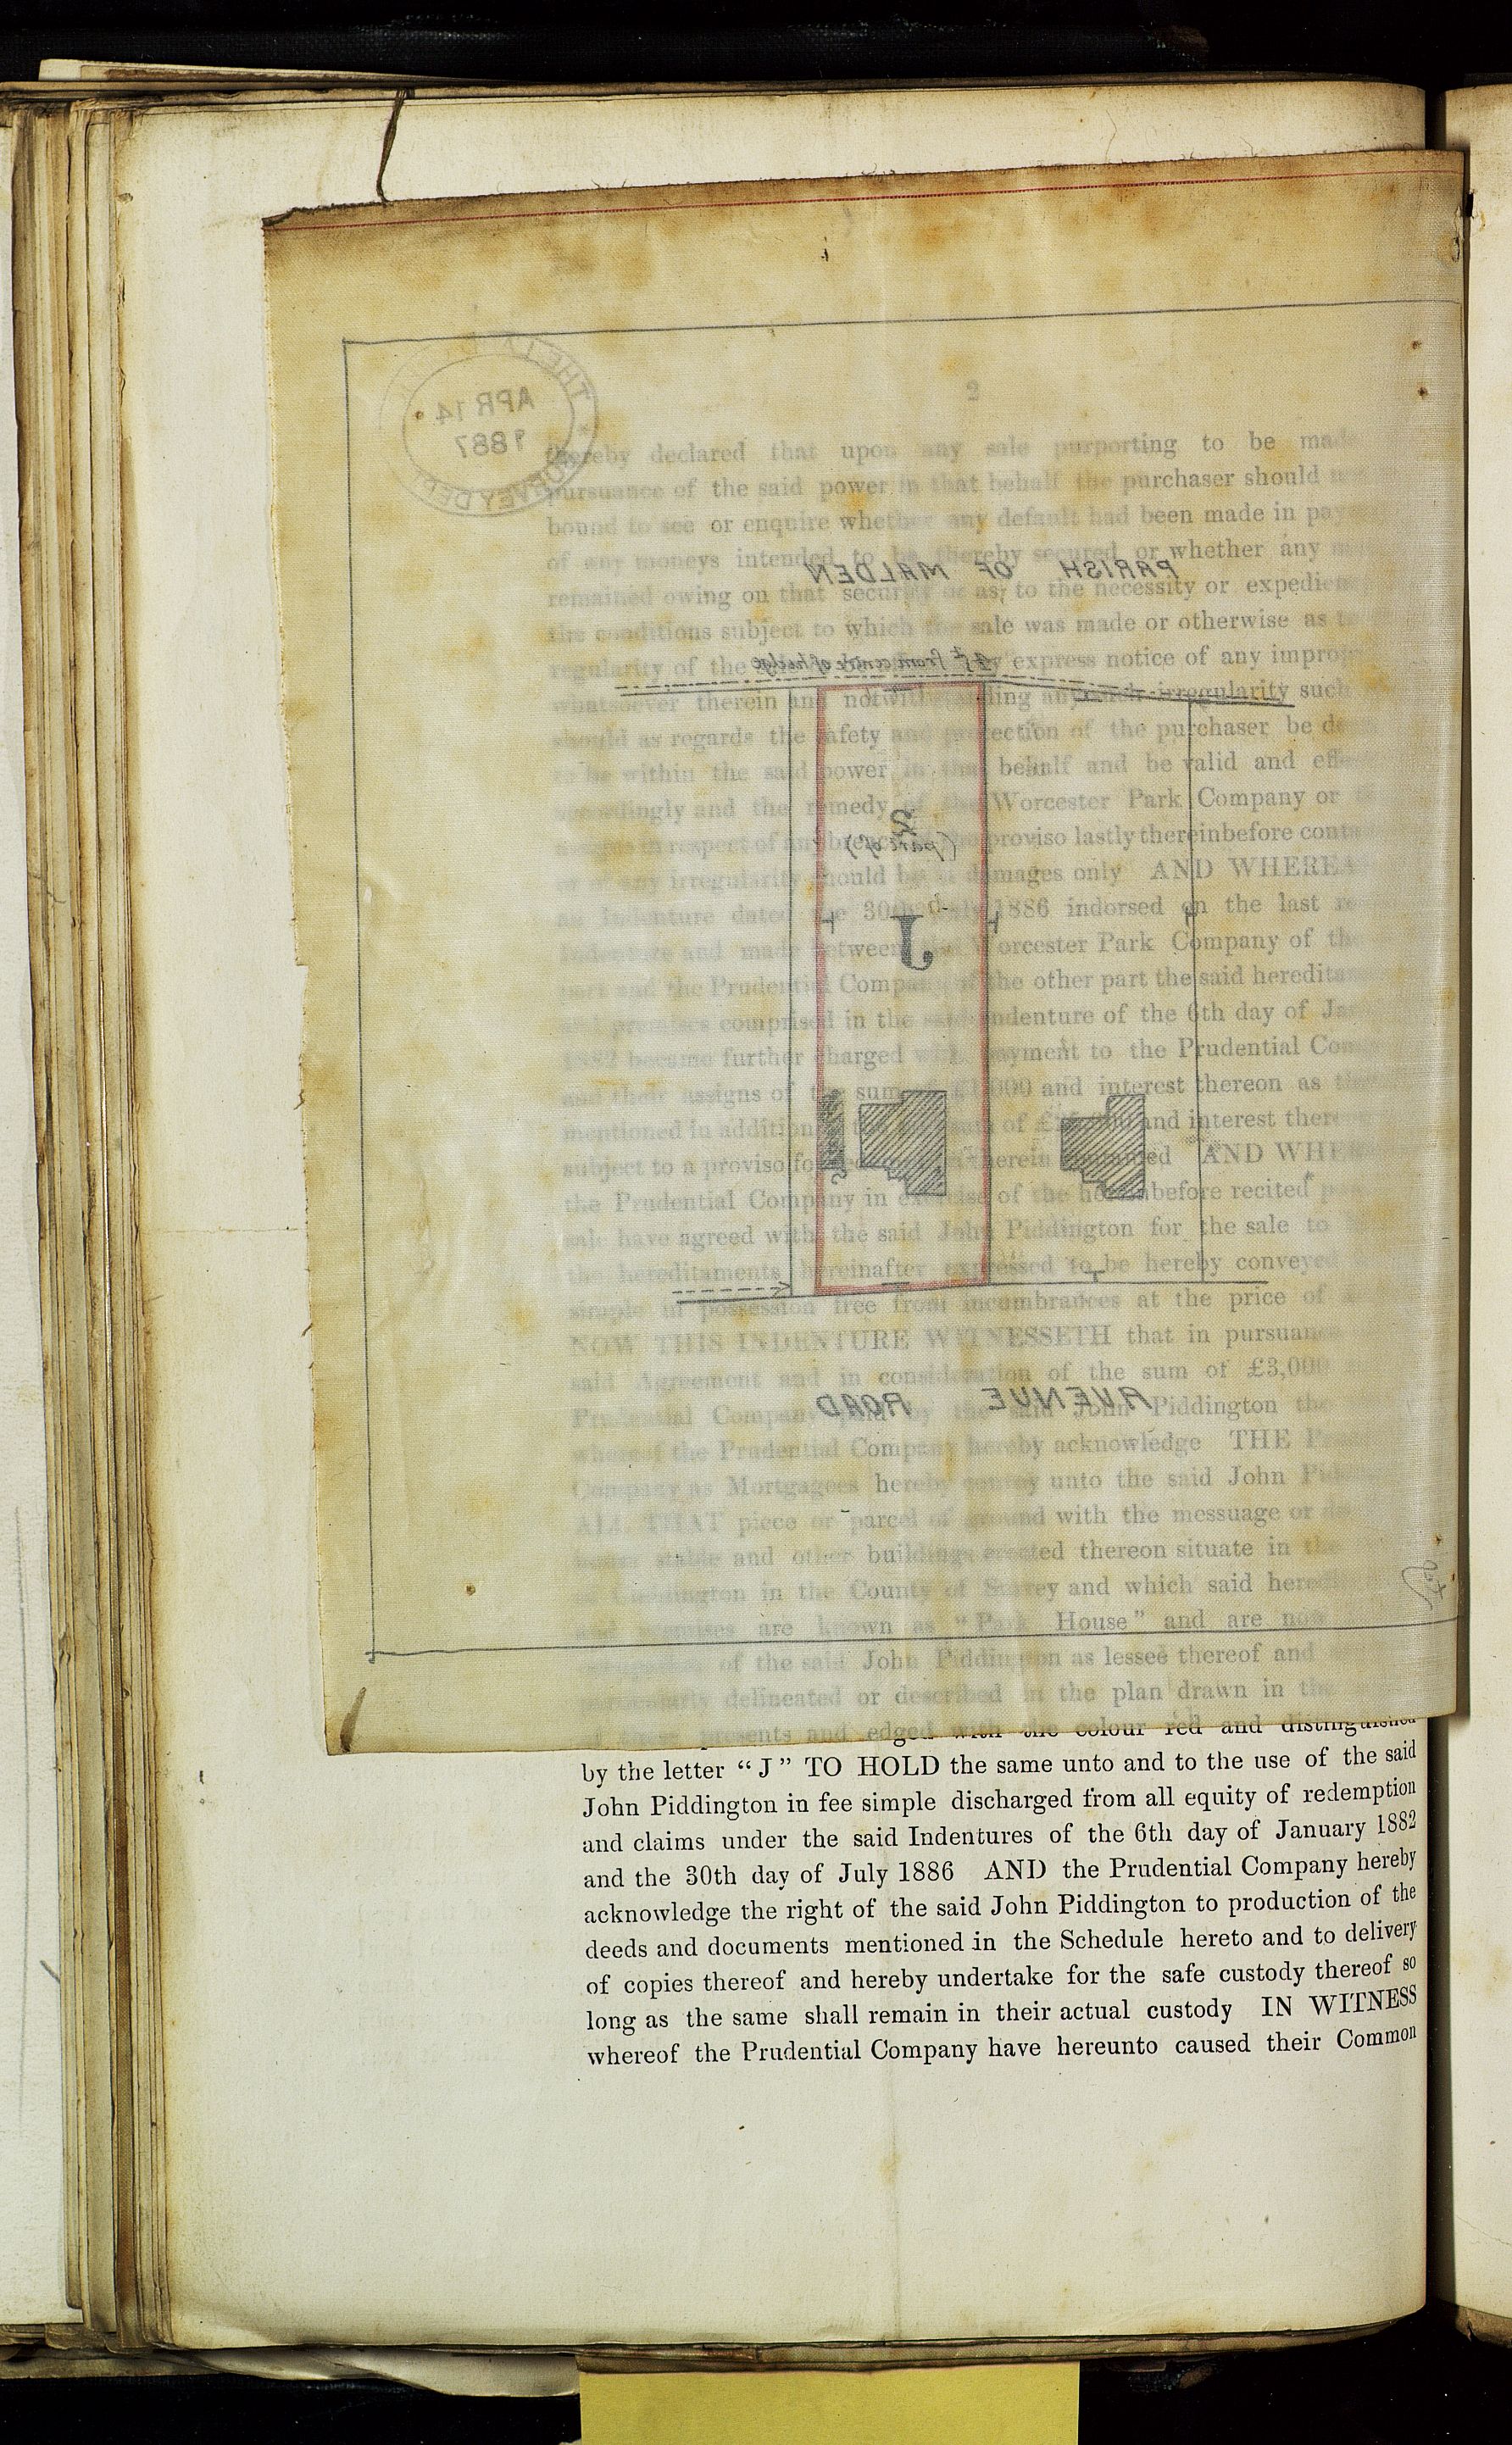 2
thereby declared that upon any sale purporting to be made
pursuance of the said power in that behalf the purchaser should
bound to see or enquire whether any default had been made in
of any moneys intended to be thereby secured or whether any
PARISH OF MALDEN
remained owing on that security or as to the necessity or
the conditions subject to which the sale was made or otherwise as
4ft from centre of hedge
regularity of the express notice of any
whatsoever therein and notwithstanding any such irregularity such
should as regards the safety and protection of the purchaser be
to be within the said power in that behalf and be valid and
accordingly and the remedy of the Worcester Park Company or
2
(part of)
assigns in respect of any breach of the proviso lastly thereinbefore
or of any irregularity should be in damages only AND WHEREAS
an Indenture dated the 30th July 1886 indorsed on the last
J
Indenture and made between the Worcester Park Company of the
part and the Prudential Company of the other part the said
and premises comprised in the said Indenture of the 6th day of
1882 became further charged with payment to the Prudential
and their assigns of the sum of £1,000 and interest thereon as
mentioned in addition to the sum of and interest
subject to a proviso for therein contained AND
the Prudential Company in exercise of the hereinbefore recited
sale have agreed with the said John Piddington for the sale to
the hereditaments hereinafter expressed to be hereby conveyed
simple in possession free from incumbrances at the price of
NOW THIS INDENTURE WITNESSETH that in pursuance
said Agreement and in consideration of the sum of £3,000
AVENUE ROAD
Prudential Company paid by the said John Piddington the
whereof the Prudential Company hereby acknowledge THE
Company as Mortgagees hereby convey unto the said John
ALL THAT piece or parcel of ground with the messuage or
house stable and other buildings erected thereon situate in the
of Cuddington in the County of Surrey and which said
and premises are known as "Park House" and are now
occupation of the said John Piddington as lessee thereof and
particularly delineated or described in the plan drawn in the
presents and edged with the colour red and distinguished
by the letter "J" TO HOLD the same unto and to the use of the said
John Piddington in fee simple discharged from all equity of redemption
and claims under the said Indentures of the 6th day of January 1882
and the 30th day of July 1886 AND the Prudential Company hereby
acknowledge the right of the said John Piddington to production of the
deeds and documents mentioned in the Schedule hereto and to delivery
of copies thereof and hereby undertake for the safe custody thereof so
long as the same shall remain in their actual custody IN WITNESS
whereof the Prudential Company have hereunto caused their Common
APR 14
1887
SURVEY DEPT